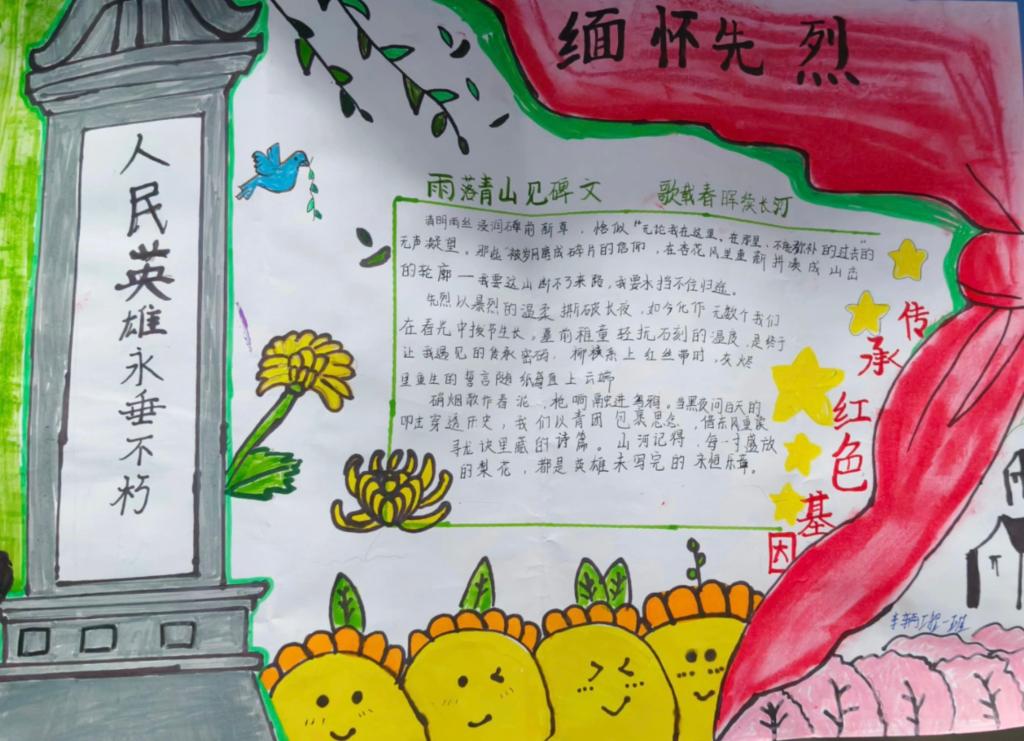 缅怀先烈
人民英雄永垂不朽
雨落青山见碑文 歌载春晖接长河
清明雨丝浸润碑前新草，恰似“无论我在这里、在那里、不能弥补的过去的”
无声凝望。那些被岁月磨成碎片的信仰，在杏花风里重新拼凑成山峦
的轮廓—我要这山断不了来路，我要水挡不住归途。
先烈以暴烈的温柔撕破长夜，如今化作无数个我们
在春光中拔节生长。墓前稚童轻抚石刻的温度，是终于
让我遇见的传承密码，柳梢系上红丝带时，灰烬
里重生的誓言随纸鸢直上云端
硝烟散作春泥，枪响融进
叩击穿透历史，我们以青团包裹思念，借东风重
寻龙诀里藏的诗篇。山河记得，每一寸盛放
的梨花，都是英雄未写完的永恒乐章。
传承
红色
基因
班